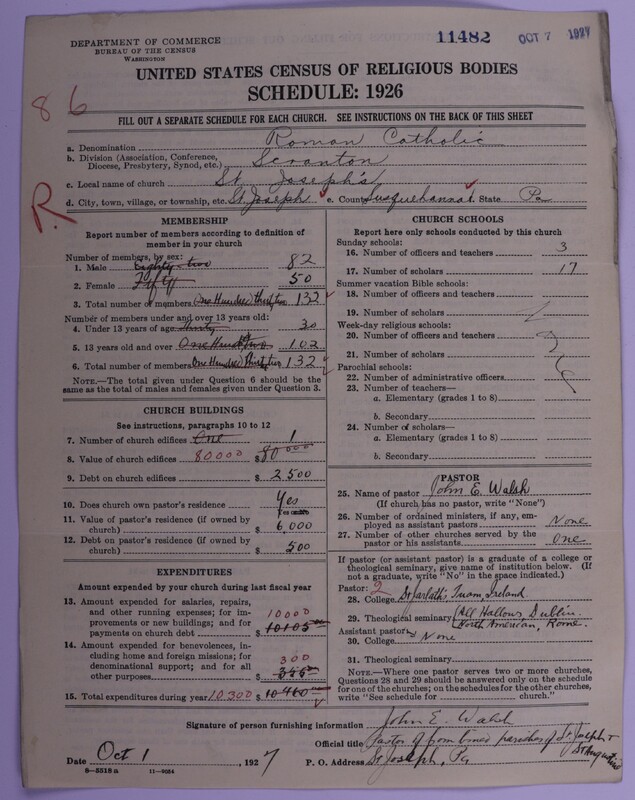 DEPARTMENT OF COMMERCE
BUREAU OF THE CENSUS
WASHINGTON
11482
OCT 7 1927
UNITED STATES CENSUS OF RELIGIOUS BODIES
SCHEDULE: 1926
86
FILL OUT A SEPARATE SCHEDULE FOR EACH CHURCH. SEE INSTRUCTIONS ON THE BACK OF THIS SHEET
R.
a. Denomination Roman Catholic
b. Division (Association, Conference, Diocese, Presbytery, Synod, etc.) Scranton
c. Local name of church St. Joseph's
d. City, town, village, or township, etc. St Joseph e. County Susquehanna f. State Pa
MEMBERSHIP
Report number of members according to definition of
member in your church
Number of members, by sex:
1. Male Eighty-two 82
2. Female Fifty 50
3. Total number of members One Hundred thirty two 132
Number of members under and over 13 years old:
4. Under 13 years of age thirty 30
5. 13 years old and over One Hund Two 102
6. Total number of members One Hundred Thirty two 132
NOTE.—The total given under Question 6 should be the
same as the total of males and females given under Question 3.
CHURCH BUILDINGS
See instructions, paragraphs 10 to 12
7. Number of church edifices One 1
8. Value of church edifices 80000 $ 80000
9. Debt on church edifices $ 2500
10. Does church own pastor's residence Yes
11. Value of pastor's residence (if owned by
church) $ 6,000
12. Debt on pastor's residence (if owned by
church) $ 500
EXPENDITURES
Amount expended by your church during last fiscal year
13. Amount expended for salaries, repairs,
and other running expenses; for im-
provements or new buildings; and for
payments on church debt 10000 $ 10105
14. Amount expended for benevolences, in-
cluding home and foreign missions; for
denominational support; and for all
other purposes 300 $
15. Total expenditures during year 10,300 $ 10460
CHURCH SCHOOLS
Report here only schools conducted by this church
Sunday schools:
16. Number of officers and teachers 3
17. Number of scholars 17
Summer vacation Bible schools:
18. Number of officers and teachers
19. Number of scholars
Week-day religious schools:
20. Number of officers and teachers
21. Number of scholars
Parochial schools:
22. Number of administrative officers
23. Number of teachers—
a. Elementary (grades 1 to 8)
b. Secondary
24. Number of scholars—
a. Elementary (grades 1 to 8)
b. Secondary
PASTOR
25. Name of pastor John E. Walsh
(If church has no pastor, write "None")
26. Number of ordained ministers, if any, em-
ployed as assistant pastors None
27. Number of other churches served by the
pastor or his assistants One
If pastor (or assistant pastor) is a graduate of a college or
theological seminary, give name of institution below. (If
not a graduate, write "No" in the space indicated.)
Pastor: 2
28. College St Jarlath's Tuam Ireland
29. Theological seminary All Hallows Dublin.
North American, Rome.
Assistant pastor:
30. College None
31. Theological seminary
NOTE.—Where one pastor serves two or more churches,
Questions 28 and 29 should be answered only on the schedule
for one of the churches; on the schedules for the other churches,
write "See schedule for church."
Signature of person furnishing information John E. Walsh
Official title Pastor of combined parishes of St. Joseph &
St Augustine
Date Oct 1, 1927 P. O. Address St Joseph, Pa
8—5518a 11—9024